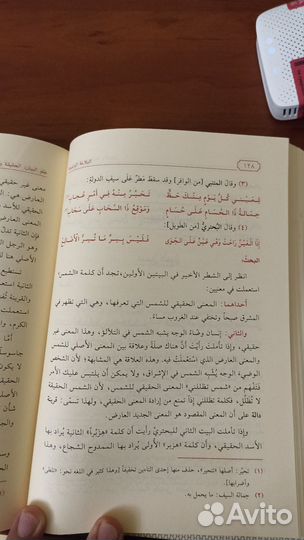 ١٢٨
البلاغة الواضحة
(٣) وقالَ المتنبي [من الوافر] وقد سقط مَطَرٌ عَلَى سيف الدولة:
لِعَيْنِي كُلَّ يَوْمٍ مِنْكَ حَظُّ تَحَيَّرُ مِنْهُ فِي أَمْرٍ عُجَابِ
حِمَالَةُ ذَا الْحُسَامِ عَلَى حُسَامٍ وَمَوْقِعُ ذَا السَّحَابِ عَلَى سَحَابِ
(٤) وقَالَ البُحْتُرِيُّ [من الطويل]:
إِذَا الْعَيْنُ رَاحَتْ وَهْيَ عَيْنٌ عَلَى الْجَوَى فَلَيْسَ بِسِرٍّ مَا تُسِرُّ الْأَضَالِعُ
البحث:
انظر إلى الشطر الأخير في البيتين الأولين، تجد أن كلمة «الشمس» استعملت في معنيين:
أحدهما: المعنى الحقيقي للشمس التي تعرفها، وهي التي تظهر في المشرق صبحاً وتختفي عند الغروب مساء.
والثاني: إنسان وضاء الوجه يشبه الشمس في التلألؤ، وهذا المعنى غير حقيقي، وإذا تأملت رأيتَ أن هناك صلة وعلاقة بين المعنى الأصلي للشمس والمعنى العارض الذي اسْتُعْمِلَتْ فيه. وهذه العلاقة هي المشابهة؛ لأن الشخص الوضيء الوجْهِ يُشْبِه الشمس في الإشراق، ولا يمكن أن يلتبس عليك الأمر فَتَفْهَم من «شمس تظللني» المعنى الحقيقي للشمس، لأن الشمس الحقيقية لا تُظَلِّل، فكلمة تظللني إذاً تمنع من إرادة المعنى الحقيقي، ولهذا تسمَّى: قرينة دالة على أن المعنى المقصود هو المعنى الجديد العارض.
وإذا تأملت البيت الثاني للبحتريِّ رأيت أن كلمة «هزَبْراً» الثانية يُراد بها الأسد الحقيقي، وأن كلمة «هزبر» الأولى يُراد بها الممدوح الشجاع، وهذا
(١) تحيَّر: أصلها «تتحير»، حذف منها إحدى التاءين تخفيفاً [وهذا كثير في اللغة نحو: «تلظى» وأضرابها].
(٢) حمالة السيف: ما يحمل به.
Avito